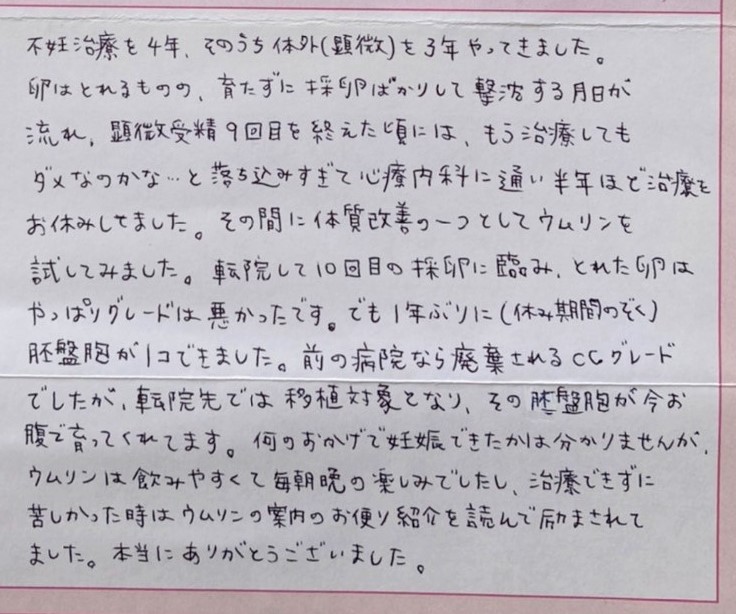 不妊治療を4年、そのうち体外(顕微)を3年やってきました。
卵はとれるものの、育たずに採卵ばかりして撃沈する月日が
流れ、顕微受精9回目を終えた頃には、もう治療しても
ダメなのかな…と落ち込みすぎて心療内科に通い半年ほど治療を
お休みしてました。その間に体質改善の一つとしてウムリンを
試してみました。転院して10回目の採卵に臨み、とれた卵は
やっぱりグレードは悪かったです。でも1年ぶりに(休み期間のぞく)
胚盤胞が1コできました。前の病院なら廃棄されるCCグレード
でしたが、転院先では移植対象となり、その胚盤胞が今お
腹で育ってくれてます。何のおかげで妊娠できたかは分かりませんが、
ウムリンは飲みやすくて毎朝晩の楽しみでしたし、治療できずに
苦しかった時はウムリンの案内のお便り紹介を読んで励まされて
ました。本当にありがとうございました。